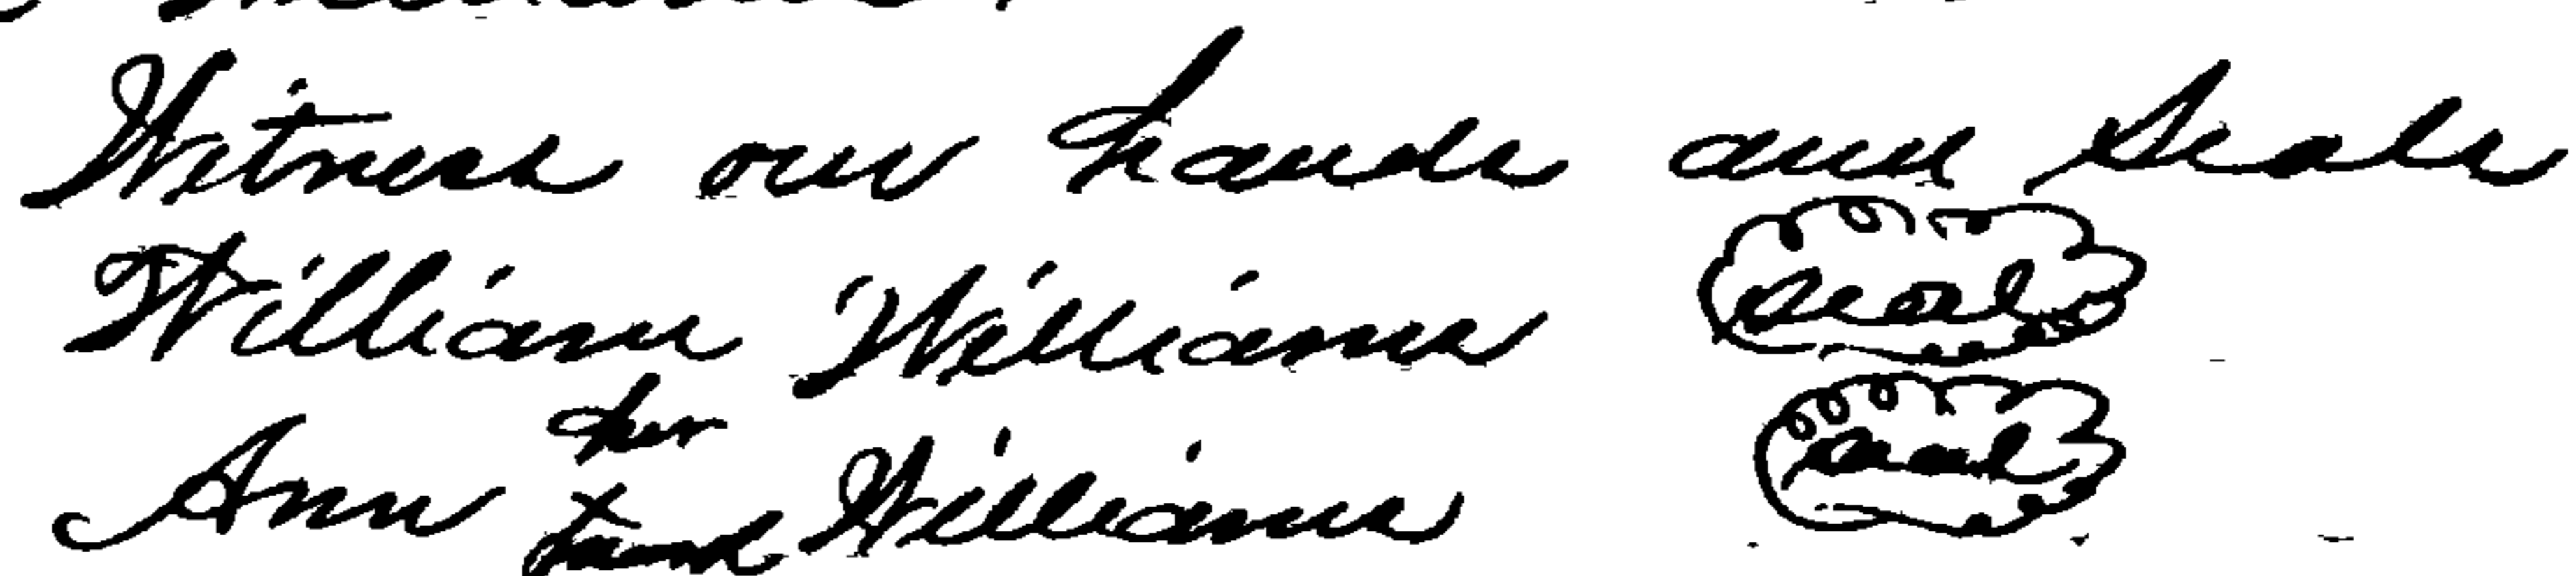 Witness our hands and Seals
William Williams seal
her
Ann x Williams seal
mark